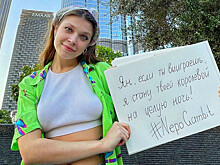 Ян, если ты выиграешь,
я стану твоей королевой
на целую ночь!
#NepoGambit